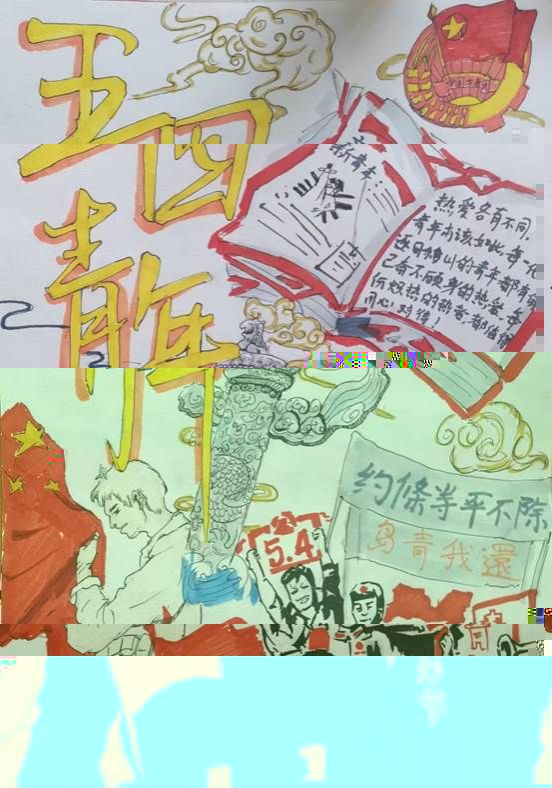 五四
青年
新青年
热爱各有不同,
青年亦该如此,每一代
的青年都有自
己奋不顾身的热爱,每
份炽热的热爱都值得
同心对待!
5.4
约條等平不除
岛青我還